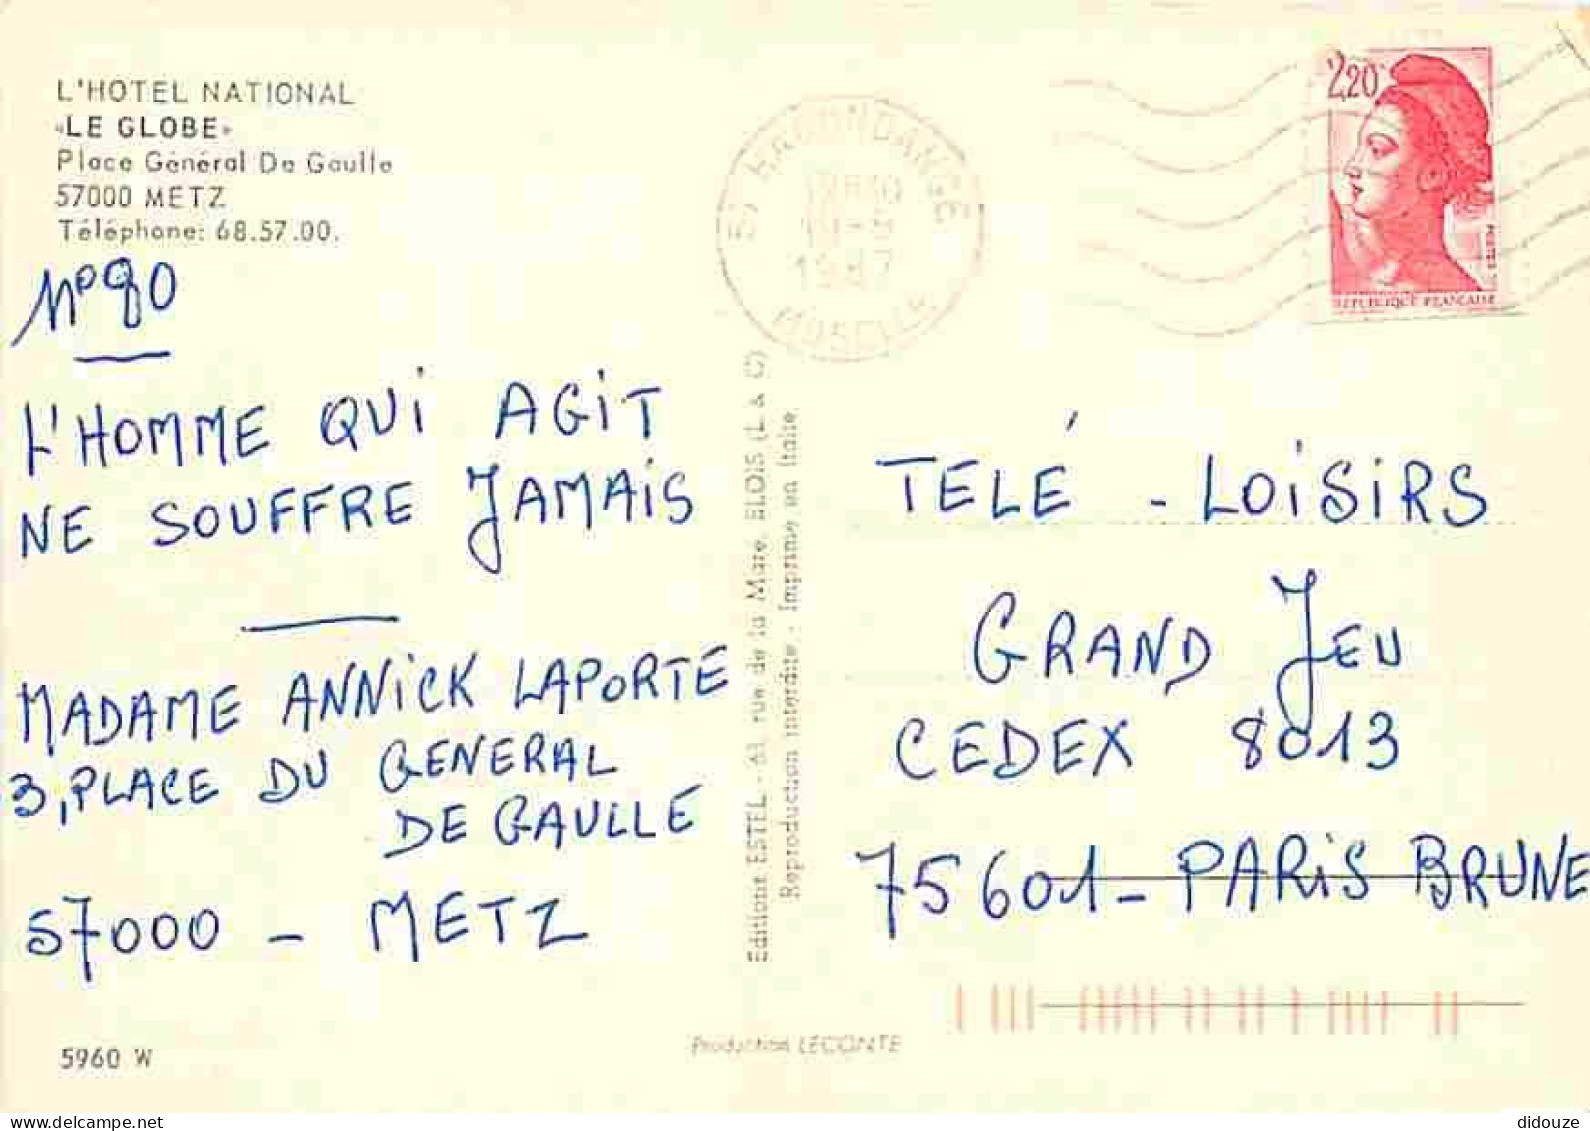 L'HOTEL NATIONAL
«LE GLOBE»
Place Général De Gaulle
57000 METZ
Téléphone: 68.57.00.
N° 80
L'HOMME QUI AGIT
NE SOUFFRE JAMAIS
MADAME ANNICK LAPORTE
3, PLACE DU GENERAL
DE GAULLE
57000 - METZ
5960 W
57 HAGONDANGE
1987
MOSELLE
2,20
POSTES
REPUBLIQUE FRANÇAISE
Editions ESTEL - 61, rue de la Mare, BLOIS (L. & C)
Reproduction interdite - Imprimé en Italie
Production LECONTE
TELÉ - LOISIRS
GRAND JEU
CEDEX 8013
75601 - PARIS BRUNE
didouze